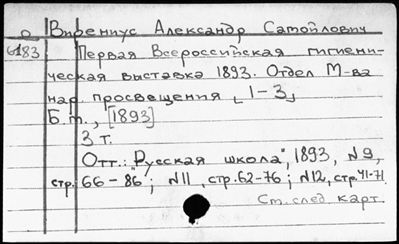 о Вирениус Александр Самойлович
6183 Первая Всероссийская гигиени-
ческая выставка 1893. Отдел М-ва
нар. просвещения [1-3]
Б.м., [1893]
3 т.
Отт.: "Русская школа", 1893, №9,
стр. 66-86; №11, стр. 62-76; №12, стр. 41-71.
См. след карт.